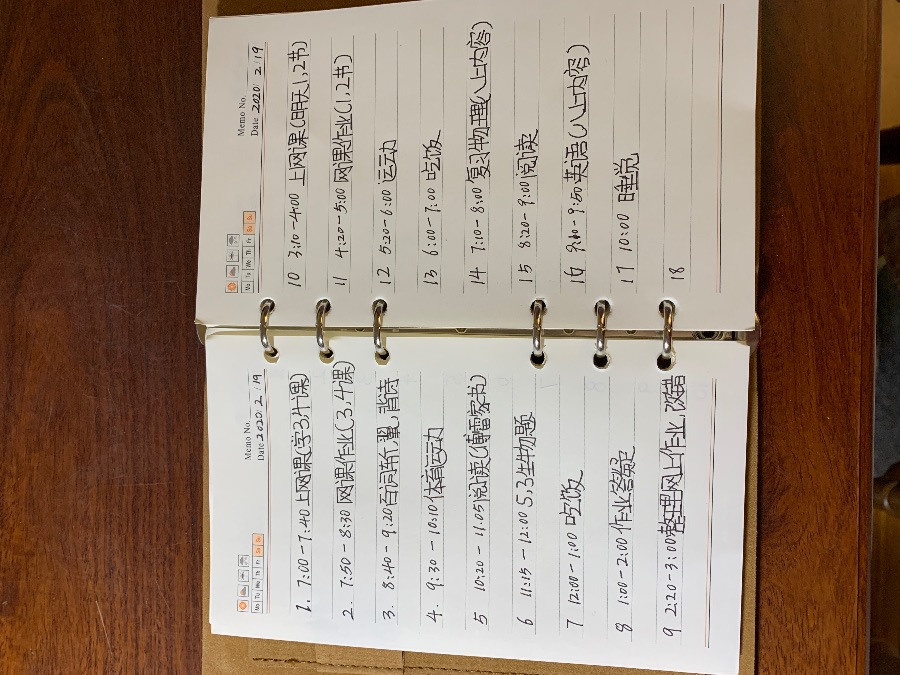 Memo No.
Date 2020 / 2 / 19
Mo Tu We Th Fr Sa Su
1. 7:00-7:40 上网课(学3,4课)
2. 7:50-8:30 网课作业(3,4课)
3. 8:40-9:20 百词斩,翼,背诗
4. 9:30-10:10 体育运动
5 10:20-11:05 阅读(傅雷家书)
6 11:15-12:00 5,3生物题
7 12:00-1:00 吃饭
8 1:00-2:00 作业答疑
9 2:20-3:00 整理网上作业,改错
Memo No.
Date 2020 / 2 / 19
Mo Tu We Th Fr Sa Su
10 3:10-4:00 上网课(明天1,2节)
11 4:20-5:00 网课作业(1,2节)
12 5:20-6:00 运动
13 6:00-7:00 吃饭
14 7:10-8:00 复习物理(八上内容)
15 8:20-9:00 阅读
16 9:10-9:50 英语(八上内容)
17 10:00 睡觉
18